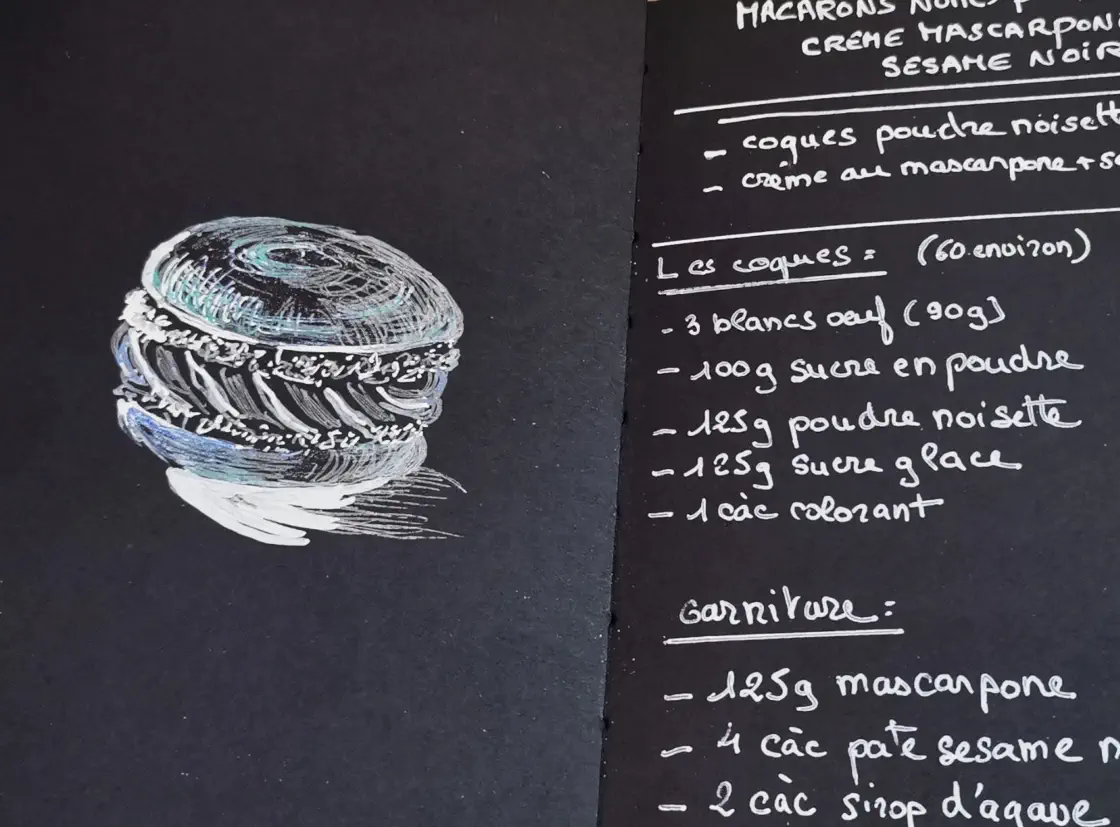 MACARONS NOIRS
CRÈME MASCARPON
SESAME NOIR
- coques poudre noisett
- crème au mascarpone + s
Les coques : (60 environ)
- 3 blancs oeuf (90g)
- 100g sucre en poudre
- 125g poudre noisette
- 125g sucre glace
- 1 càc colorant
Garniture :
- 125g mascarpone
- 4 càc pate sesame n
- 2 càc sirop d'agave